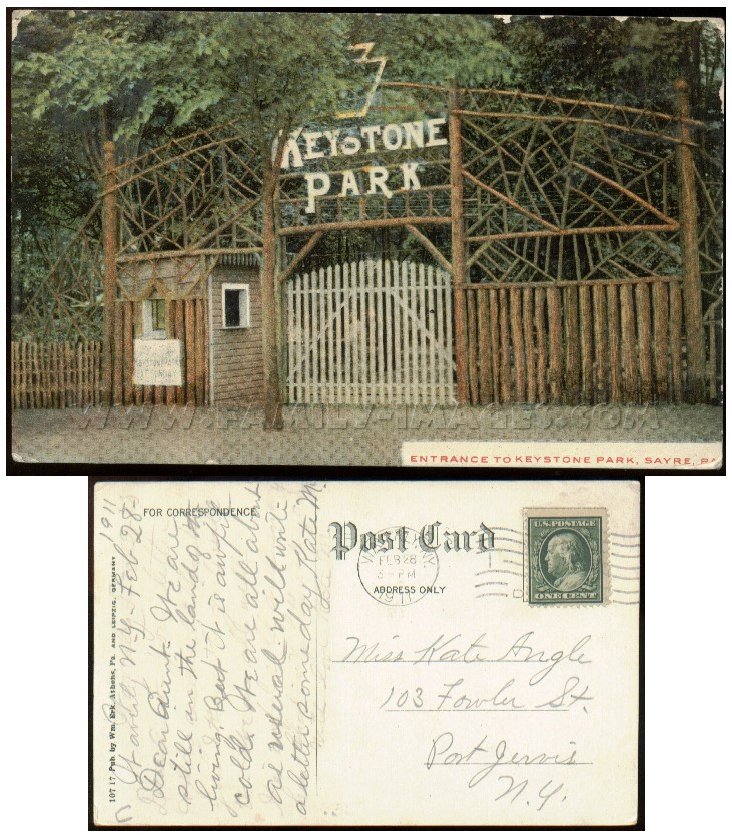 KEYSTONE
PARK
KEYSTONE PARK
WWW.FAMILY-IMAGES.COM
ENTRANCE TO KEYSTONE PARK, SAYRE, PA
FOR CORRESPONDENCE
Post Card
ADDRESS ONLY
FEB 28
PM
1911
U.S. POSTAGE
ONE CENT
10717 Pub. by Wm. Erk, Athens, Pa. AND LEIPZIG, GERMANY
1911
N.Y. Feb 28-
Dear Aunt. We are
still in the land of the
living, but it is awful
cold. We are all about
as usual will write
a letter some day Kate M.
Miss Kate Angle
103 Fowler St.
Port Jervis
N.Y.